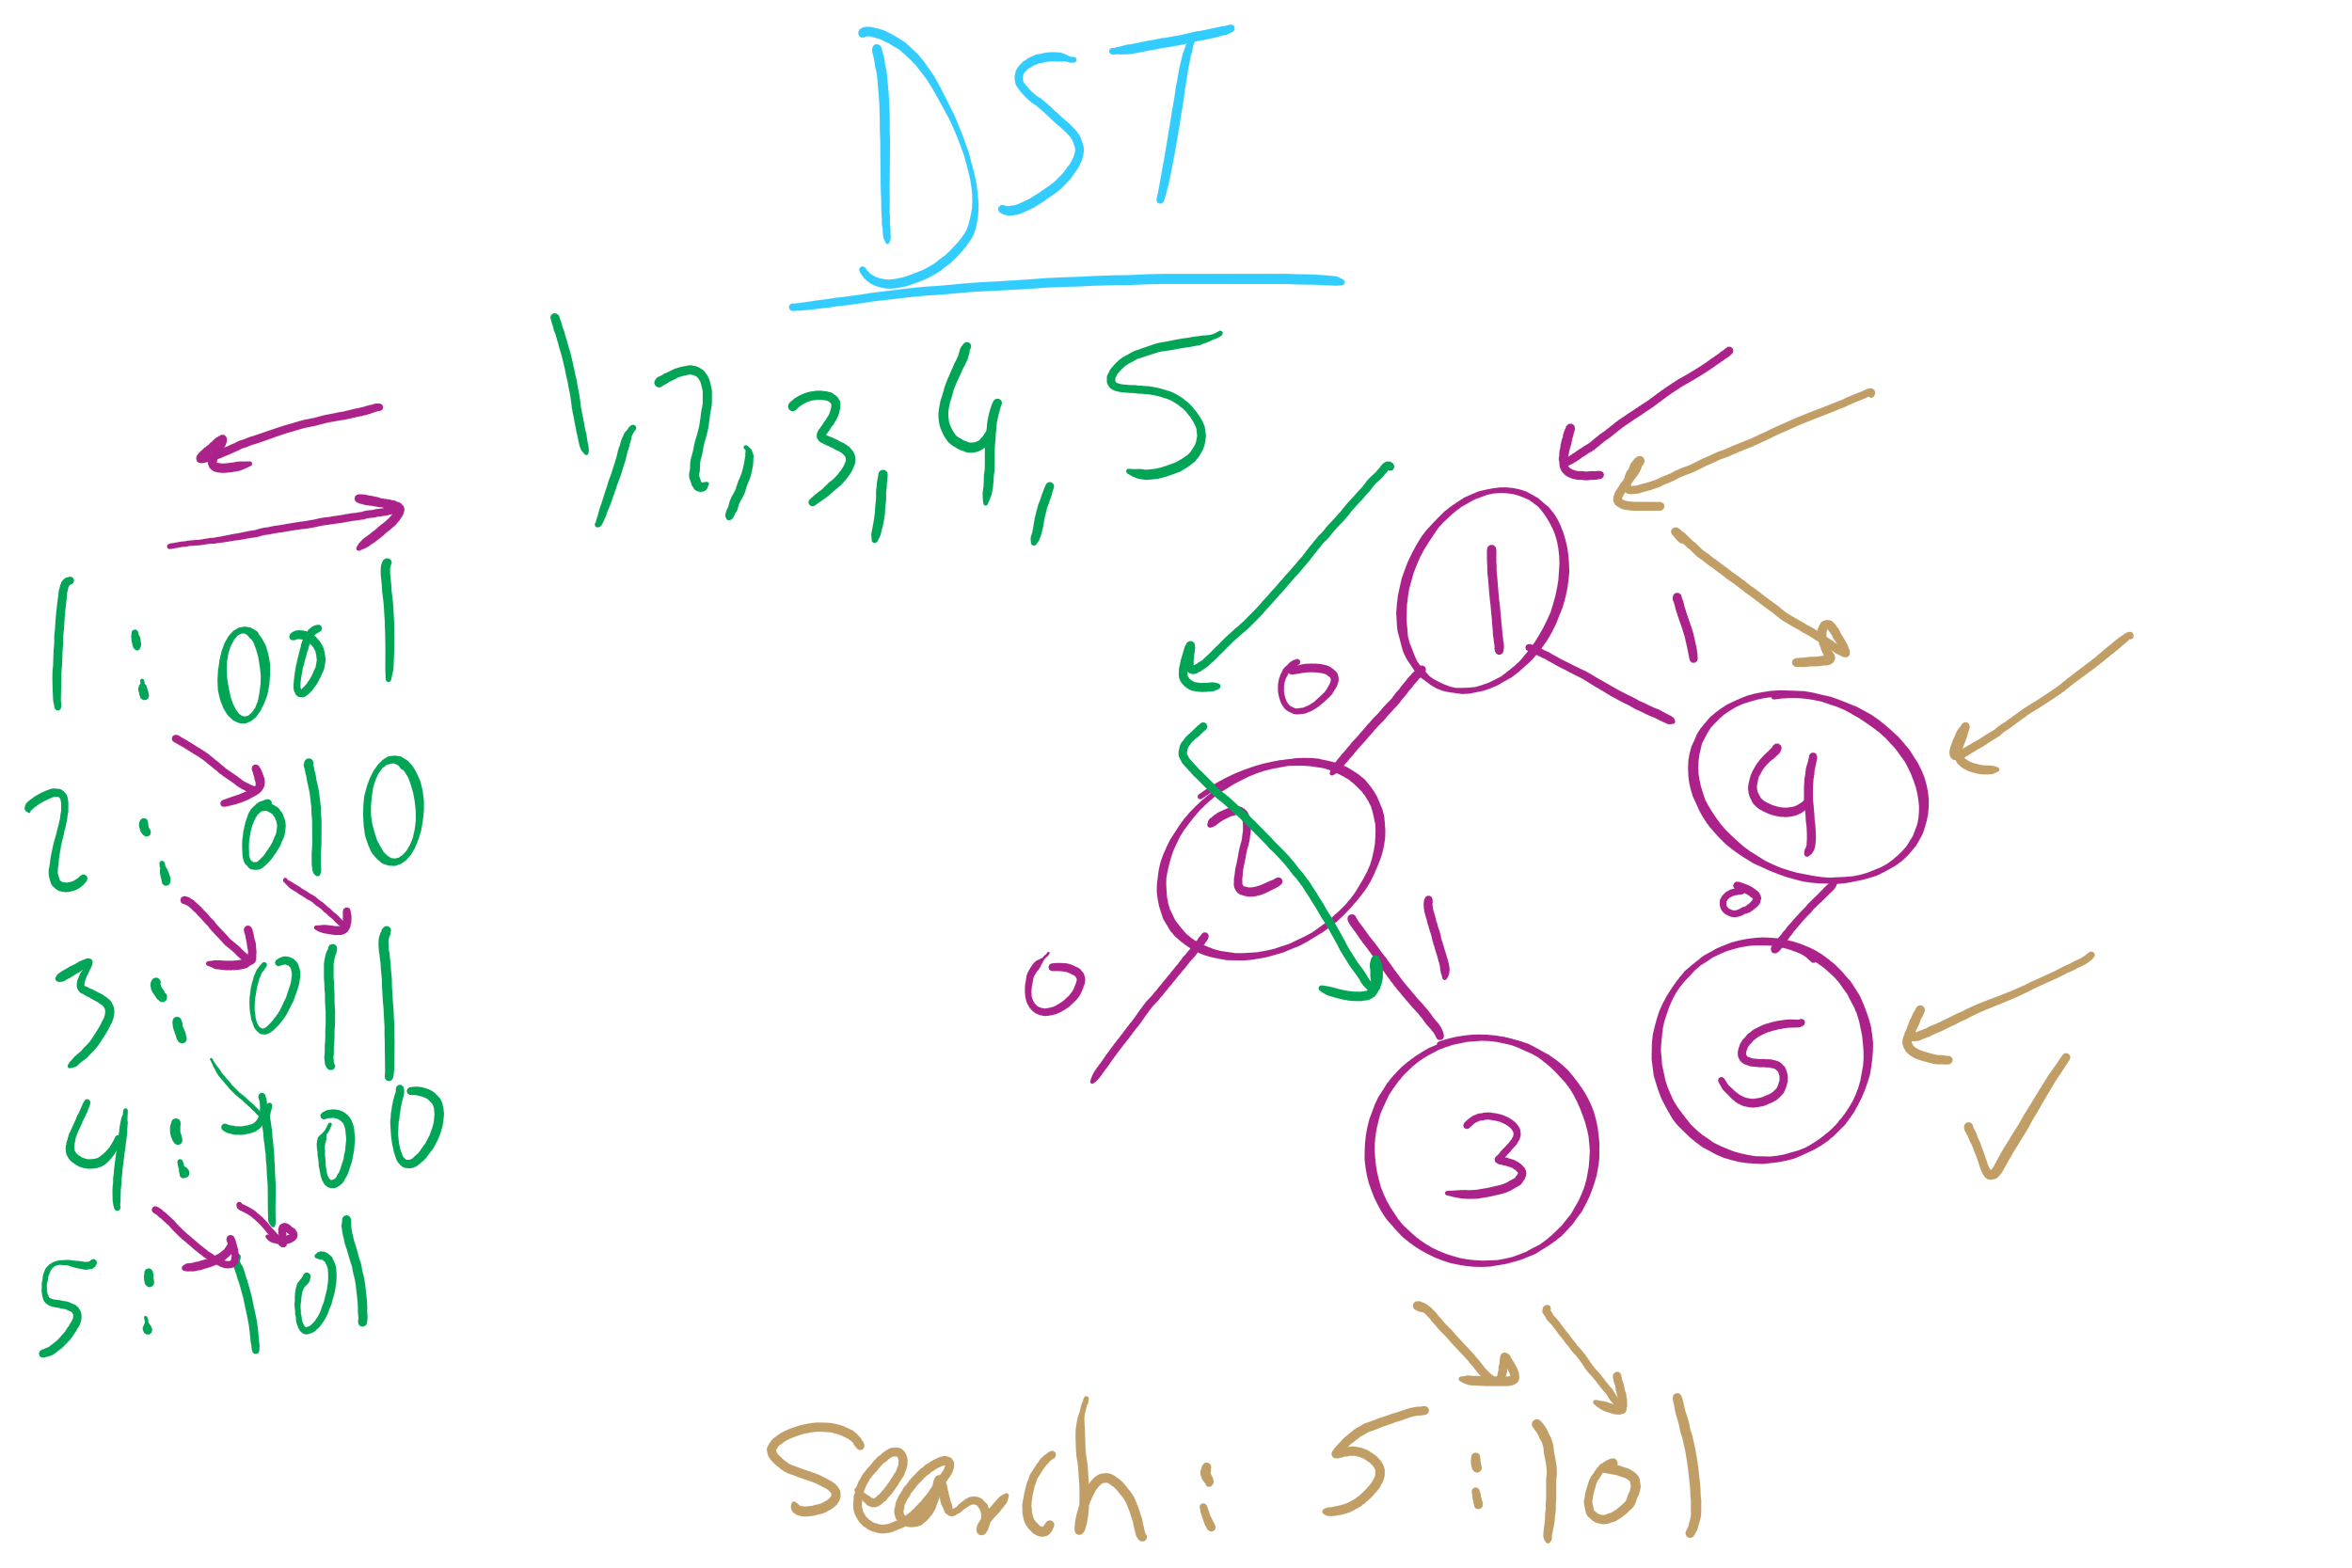 DST
1, 2, 3, 4, 5
1 : 001
2 : 010
3 : 011
4 : 100
5 : 101
1
0 1
2 4
0 1 0
3 5
Search : 5 : 101